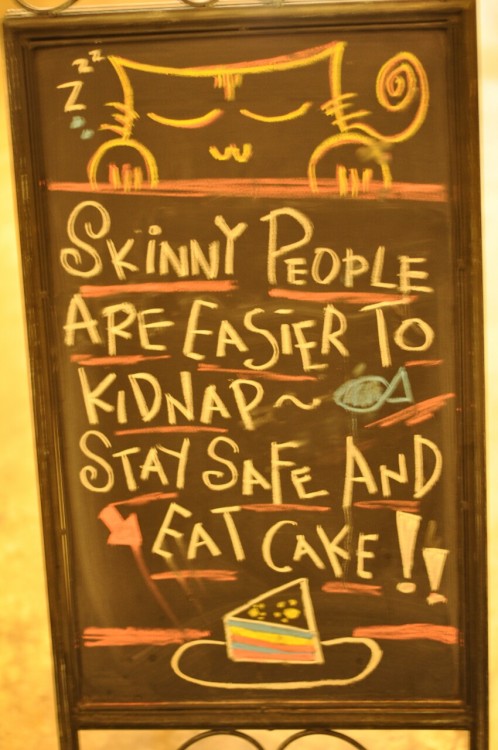 z z z
SKiNNY PEOPLE
ARE EASiER TO
KiDNAP~
STAY SAFE AND
EAT CAKE!!